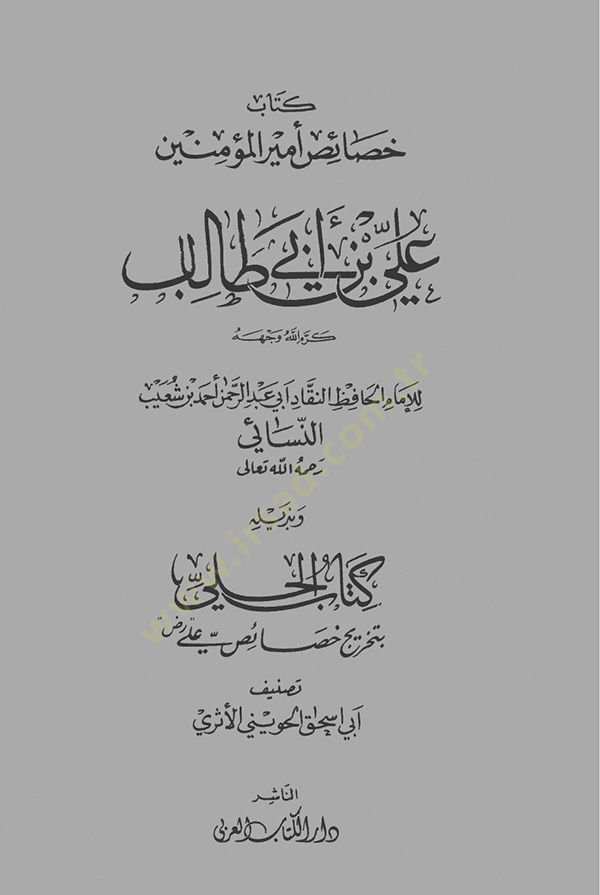 كتاب
خصائص أمير المؤمنين
علي بن أبي طالب
كرم الله وجهه
للإمام الحافظ النقاد أبي عبد الرحمن أحمد بن شعيب
النسائي
رحمه الله تعالى
وبذيله
كتاب الحلي
بتخريج خصائص علي رض
تصنيف
أبي اسحاق الحويني الأثري
الناشر
دار الكتاب العربي